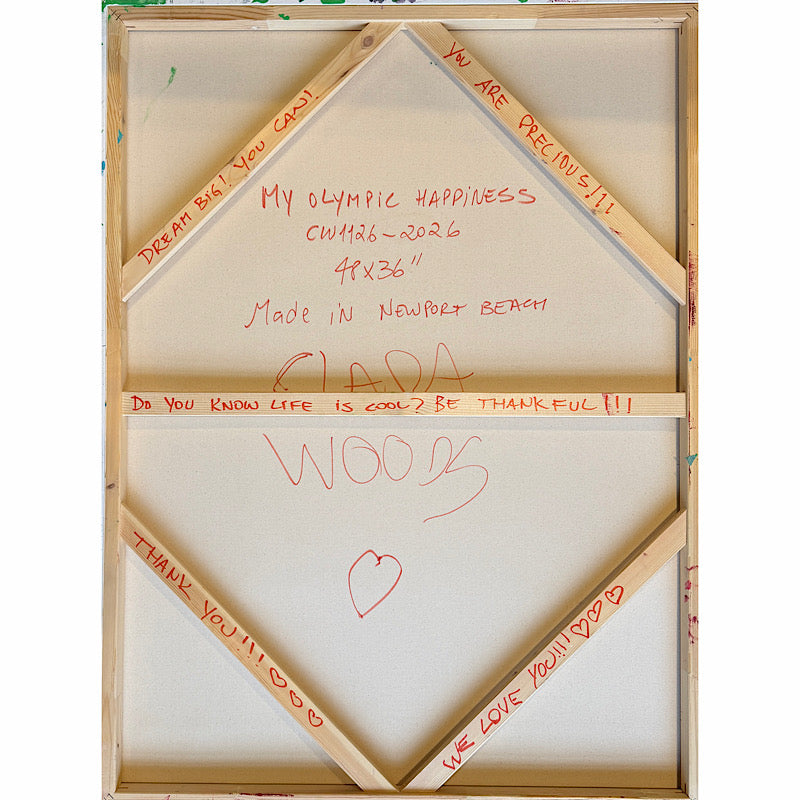 DREAM BIG! YOU CAN!
YOU ARE PRECIOUS!!!
MY OLYMPIC HAPPINESS
CW1126-2026
48x36"
Made in NEWPORT BEACH
CLARA
DO YOU KNOW LIFE is COOL? BE THANKFUL!!!
WOODS
THANK YOU!!! ♡♡♡
WE LOVE YOU!!!! ♡♡♡